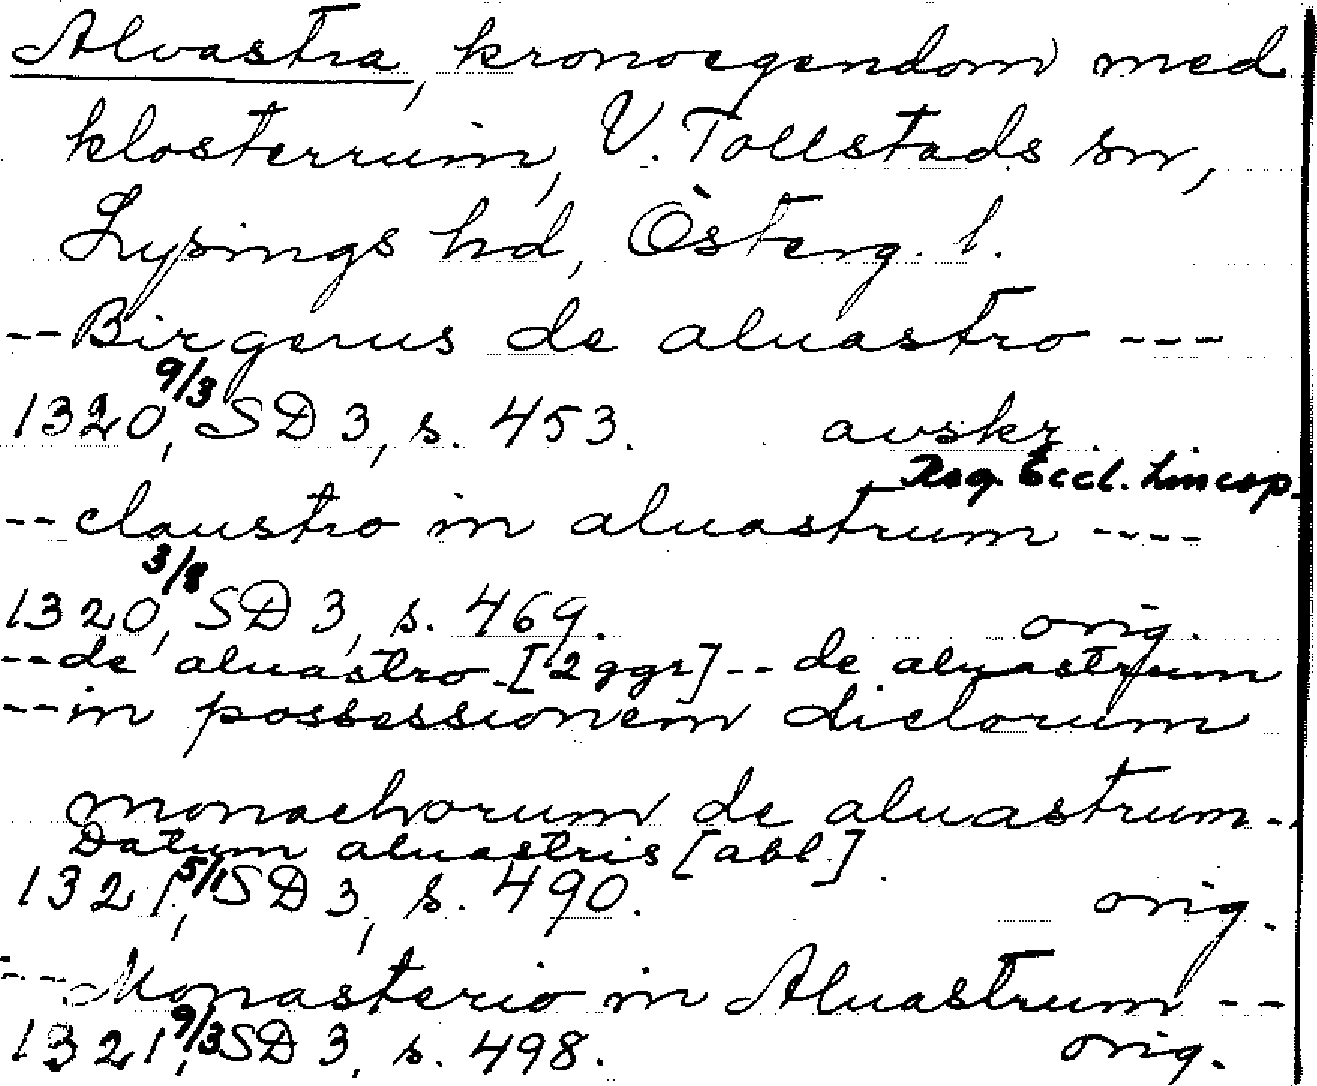 Alvastra, kronoegendom med
klosterruin, V. Tollstads sn,
Lysings hd, Österg. l.
--Birgerus de aluastro ---
1320 9/3, SD 3, s. 453. avskr.
Reg. Eccl. Lincop.
--claustro in aluastrum ----
1320 3/8, SD 3, s. 469. orig.
--de aluastro [2 ggr] -- de aluastrum
--in possessionem dictorum
monachorum de aluastrum--
Datum aluastris [abl.]
1321 5/1, SD 3, s. 490. orig.
--Monasterio in Aluastrum --
1321 9/3, SD 3, s. 498. orig.